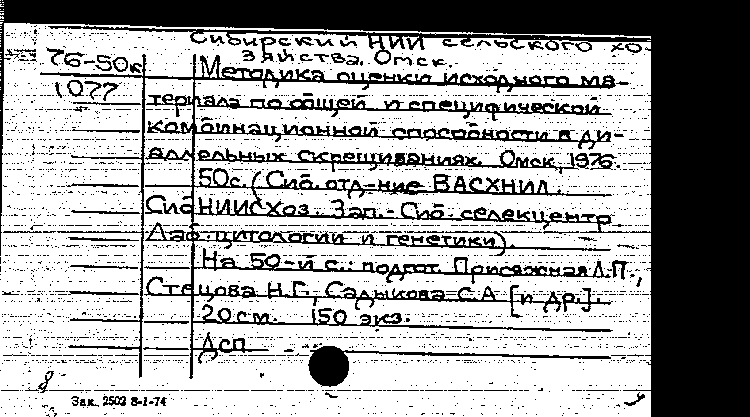 Сибирский НИИ сельского хо-
зяйства. Омск.
76-50к
1077
Методика оценки исходного ма-
териала по общей и специфической
комбинационной способности в ди-
аллельных скрещиваниях. Омск, 1976.
50с. (Сиб. отд-ние ВАСХНИЛ.
СибНИИСХоз. Зап.-Сиб. селекцентр.
Лаб. цитологии и генетики).
На 50-й с.: подгот. Присяжная Л.П.,
Стецова Н.Г., Садыкова С.А [и др.].
20см. 150 экз.
Дсп
Зак. 2502 8-1-74